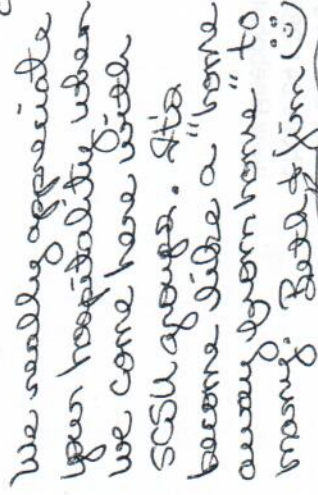 We really appreciate
your hospitality when
we come here with
SCSU groups. It's
become like a "home
away from home" to
many. Beth & Jim :)